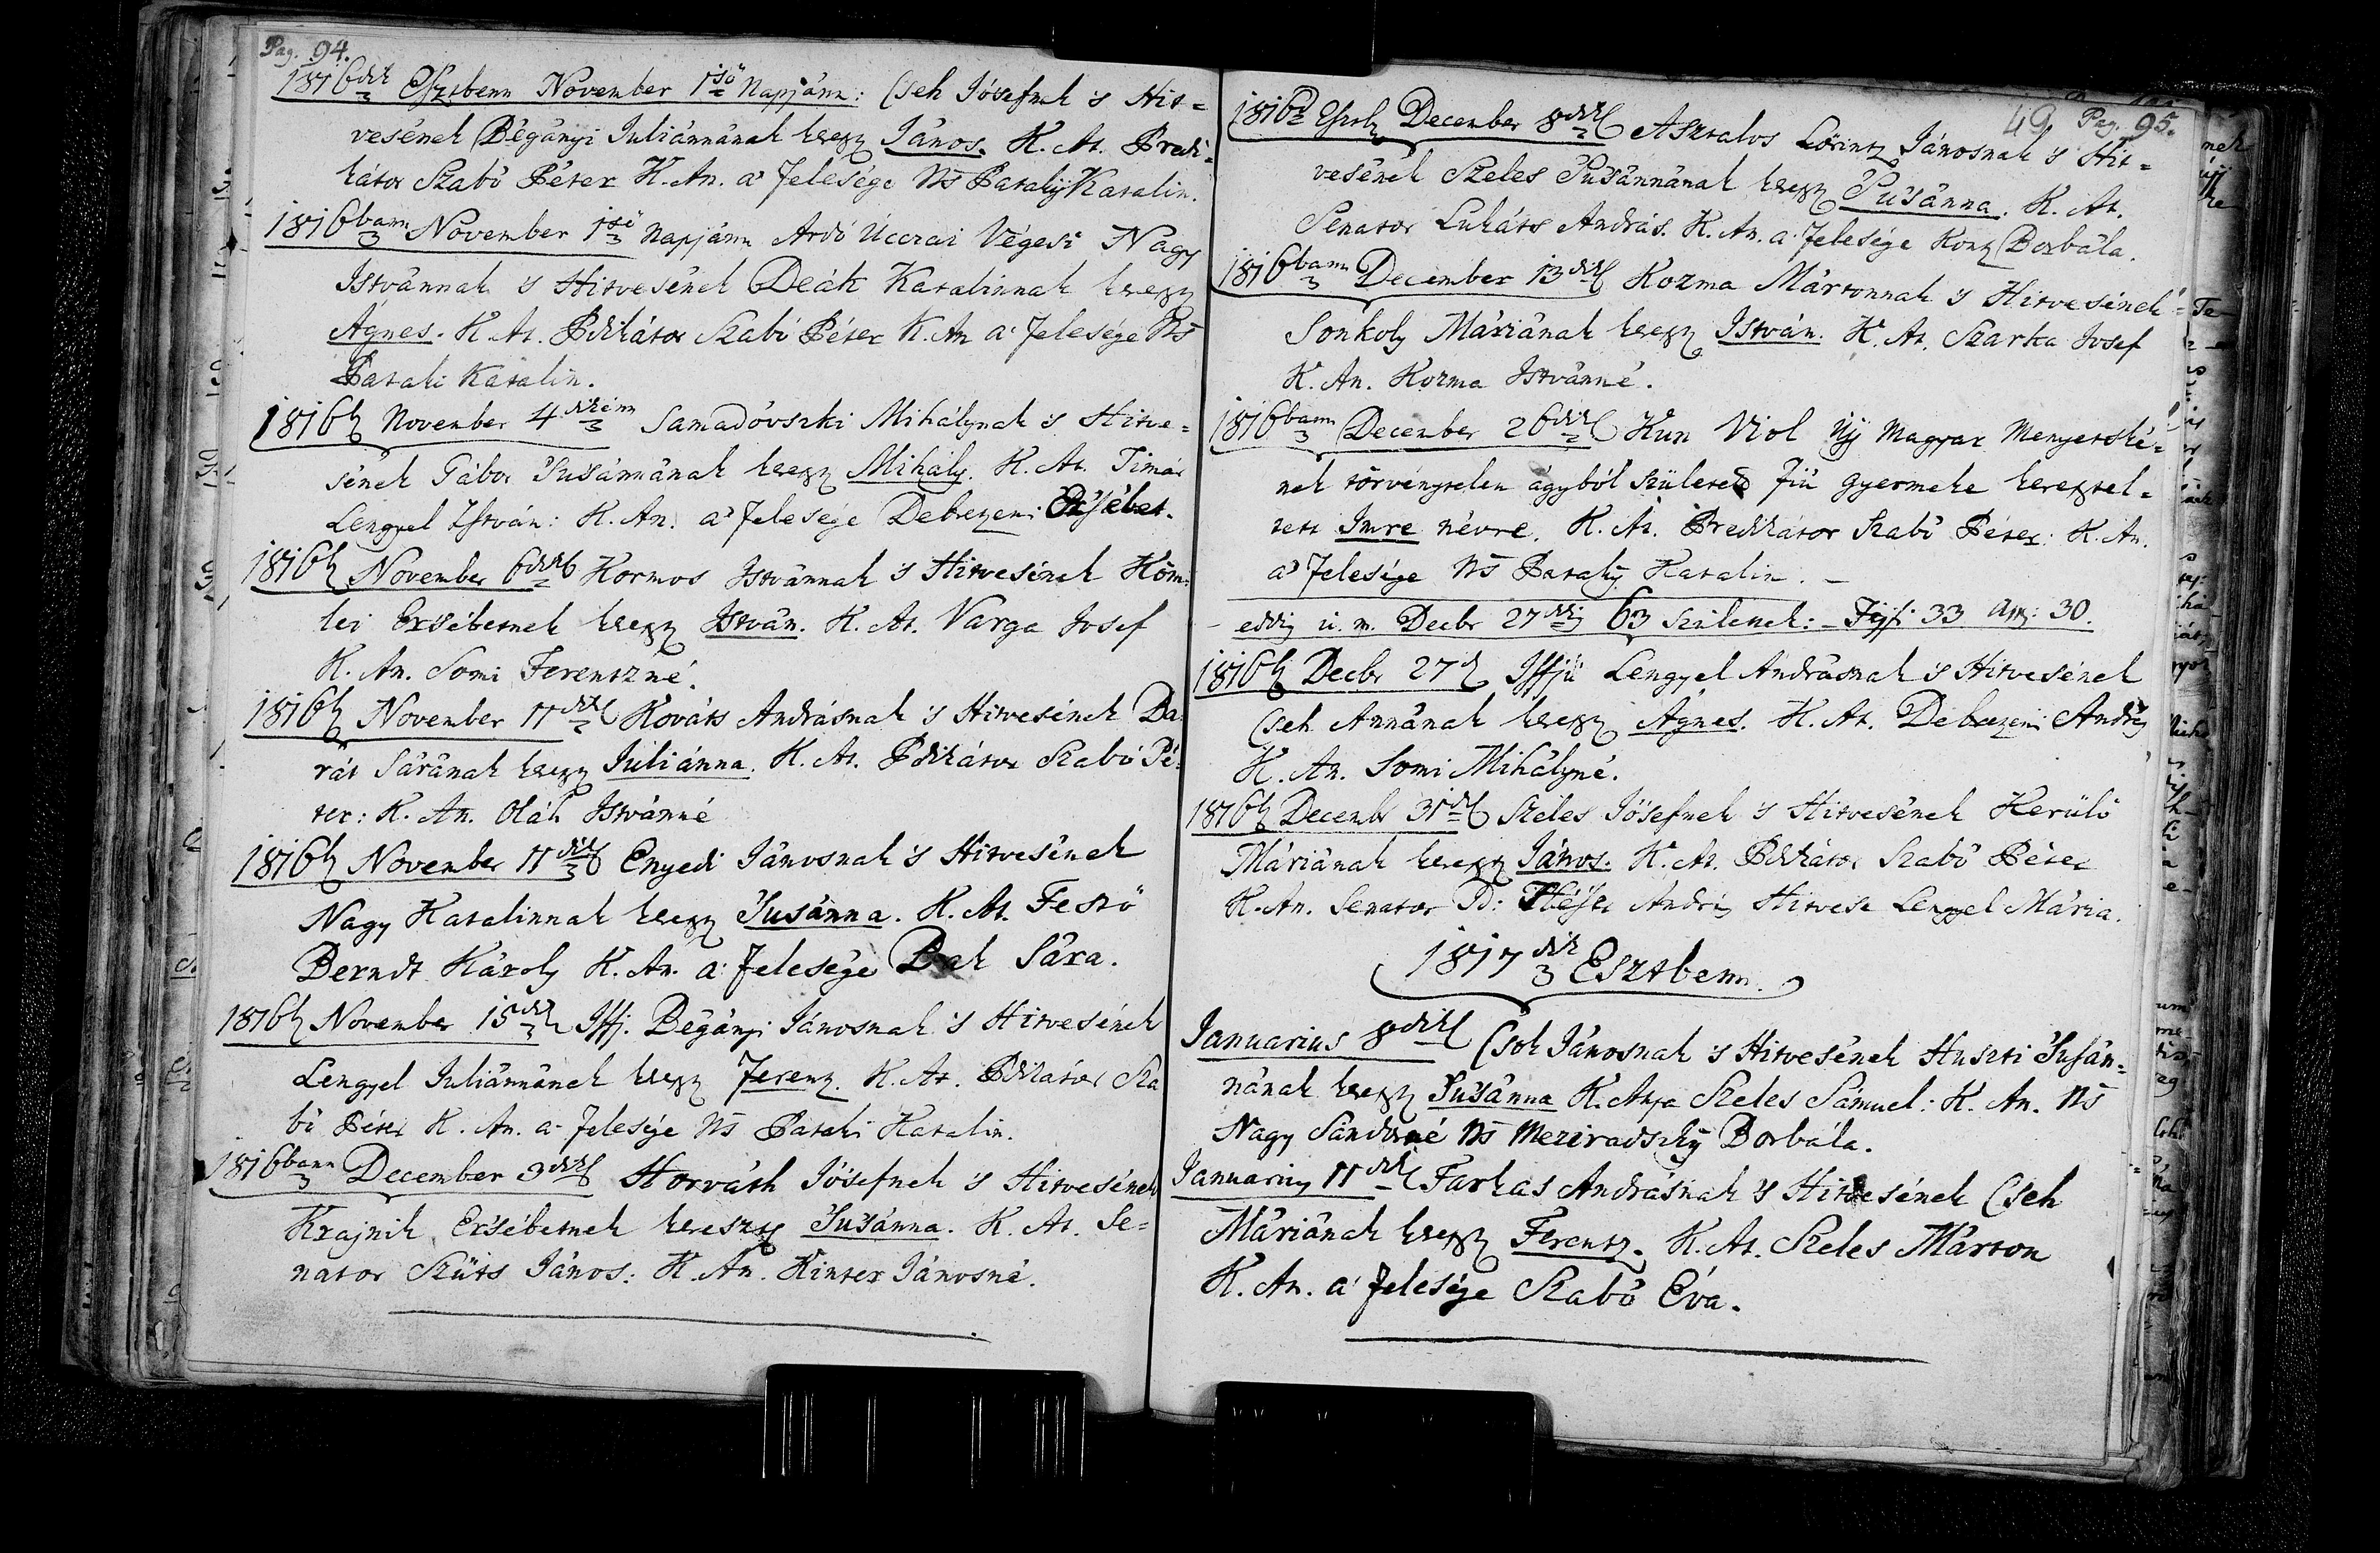 Pag. 94.
1816dik Esztbenn November 1ső Napjánn: Cseh Jósefnek 's Hit=
vesének Bégányi Juliánnának kereszt János. K. At. Predi=
kátor Szabó Péter K. An. a' Felesége Ns Pataky Katalin.
1816bann November 1ső Napjánn Ardó Úcczai Végesi Nagy
Istvánnak 's Hitvesének Deák Katalinnak kereszt
Ágnes. K. At. Pdikátor Szabó Péter K. An a' Felesége Ns
Pataki Katalin.
1816b November 4dikénn Samadóvszki Mihálynak 's Hitve=
sének Gábor Susánnának kereszt Mihály. K. At. Timár
Lengyel István: K. An. a' Felesége Debrezeni Ersébet.
1816b November 6dik Kormos Istvánnak 's Hitvesének Köm=
lei Ersébetnek kereszt István. K. At. Varga Josef
K. An. Somi Ferentzné.
1816b November 11dik Kováts Andrásnak 's Hitvesének Ba=
rát Sárának kereszt Juliánna. K. At. Pdikátor Szabó Pé=
ter: K. An. Oláh Istvánné
1816b November 11dik Enyedi Jánosnak 's Hitvesének
Nagy Katalinnak kereszt Susánna. K. At. Festő
Berndt Károly K. An. a' Felesége Bak Sára.
1816b November 15dik Iffj. Bégányi Jánosnak 's Hitvesének
Lengyel Juliánnának kereszt Ferenz. K. At. Pdikátor Sza
bó Péter K. An. a' Felesége Ns Pataki Katalin.
1816bann December 3dik Horváth Jósefnek 's Hitvesének
Krajnik Ersébetnek kereszt Susánna. K. At. Se=
nator Szüts János: K. An. Kinter Jánosné.
49 Pag. 95.
1816 Esztb December 8dik Asztalos Lörintz Jánosnak 's Hit=
vesének Szeles Susánnának kereszt Susánna. K. At.
Senator Lukáts András. K. An. a' Felesége Konz Borbála.
1816bann December 13dik Kozma Mártonnak 's Hitvesének
Sonkoly Máriának kereszt István. K. At. Szarka Josef
K. An. Kozma Istvánné.
1816bann December 26dik Kun Viol Uj Magyar Menyetské=
nek törvénytelen ágyból született Fiú gyermeke kereszttel=
tett Imre névre. K. At. Predikátor Szabó Péter: K. An.
a' Felesége Ns Pataky Katalin. —
– eddig u. m. Decbr 27dig 63 születnek: – Fijfi 33 Assz: 30.
1816b Decbr 27d Iffjú Lengyel Andrásnak 's Hitvesének
Cseh Annának kereszt Ágnes. K. At. Debrezeni András
K. An. Somi Mihályné.
1816b Decembr 31dik Szeles Jósefnek 's Hitvesének Kerülő
Máriának kereszt János. K. At. Pdikátor Szabó Péter
K. An. Senator András Hitvese Lengyel Mária.
1817dik Esztbenn.
Januarius 8dik Csok Jánosnak 's Hitvesének Huszti Susán=
nának kereszt Susánna K. Atya Szeles Sámuel: K. An. Ns
Nagy Sándorné Ns Meziradszky Borbála.
Januarius 11dik Farkas Andrásnak 's Hitvesének Cseh
Máriának kereszt Ferentz. K. At. Szeles Márton
K. An. a' Felesége Szabó Éva.